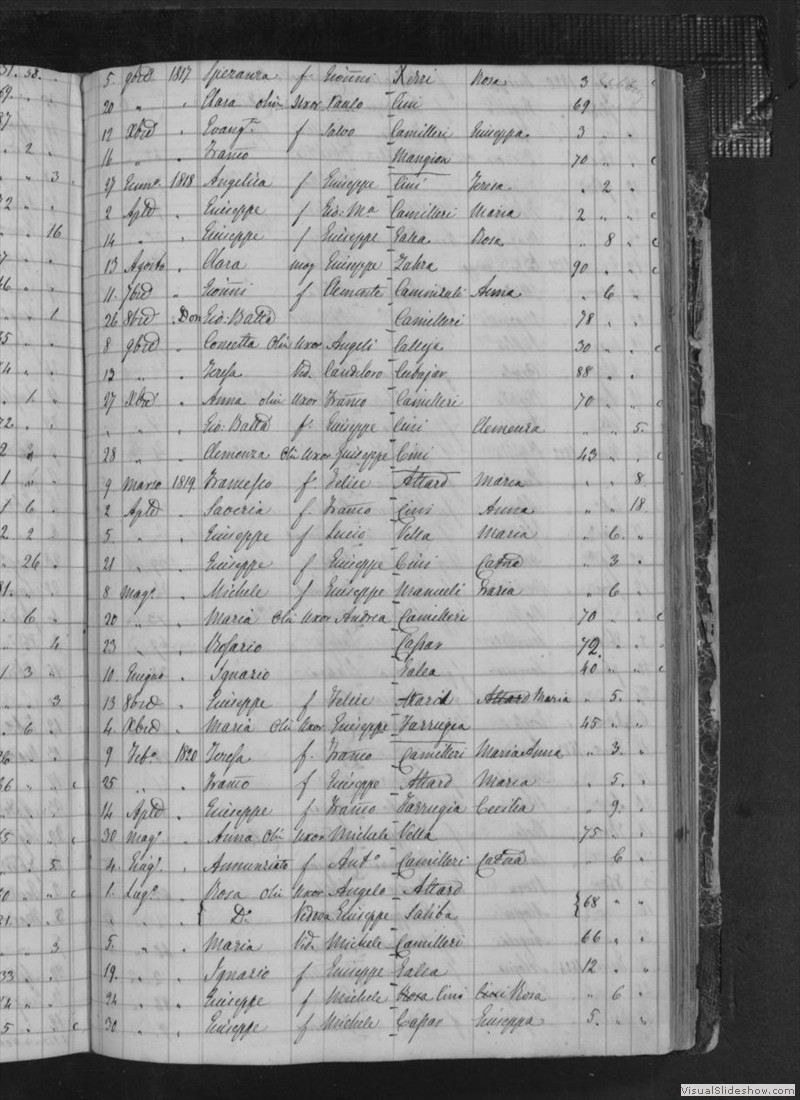 31. 38.
69.
87
. 2 .
. " 3
72 . .
" . 16
. . 1
. 1 .
72. . .
2 " .
1 6 .
2. 2 .
. 26 .
81. . .
. 6 .
. . 4
1 3 .
. . 3
. 6 .
. . 5
. . 3
33 . .
5 . . c
5. 9bre 1817 Speranza f. Gioñni Xerri Rosa 3 . c
20 " . Clara olim Uxor Paulo Cini 69
12 Xbre . Evangta f Salvo Camilleri Giuseppa 3 . .
16 " . Franco Mangion 70 " . c
27 Genno. 1818 Angelica f Giuseppe Cini Teresa . 2 .
2 Aple . Giuseppe f Gio: Ma Camilleri Maria 2 " . c
14 " . Giuseppe f Giuseppe Galea Rosa . 8 . c
13 Agosto . Clara mog Giuseppe Zahra 90 . . c
11. 7bre . Gioñni f Clemente Anna . 6 .
26 8bre . Don Gio: Batta Camilleri 78 . .
8 9bre . Concetta Olim Uxor Angeli Calleja 30 . . c
12 " . Teresa Vid. Candiloro Cubajar 88 . .
27 Xbre . Anna olim Uxor Franco Camilleri 70 . . c
" " . Gio: Batta f. Giuseppe Cini Clemenza " " 5.
28 . Clemenza Olim Uxor Giuseppe Cini 43 . . c
9 Marzo 1819. Francesco f. Felice Attard Maria . . 8
2 Aple . Saveria f. Franco Cini Anna " " 18
5 . . Giuseppe f Lucio Vella Maria " 6. .
21 . . Giuseppe f Giuseppe Cini Catna . 3 .
8 Mago . Michele f Giuseppe Manueli Maria . 6 .
20 " . Maria Olim Uxor Andrea Camilleri 70 . . c
23 . Rosario Caspar 72. . .
10 Giugno . Ignazio Galea 40 " . c
13 8bre . Giuseppe f Felice Attard Attard Maria " 5. .
4. Xbre . Maria Olim Uxor Giuseppe Farrugia 45 . .
9 Febo. 1820 Teresa f. Franco Camilleri Maria Anna " 3. .
25 " . Franco f Giuseppe Attard Maria . 5. .
14 Aple . Giuseppe f Franco Farrugia Cecilia " 9. .
30 Mago . Anna Olim Uxor Michele Vella 75 . .
4. Giugo. . Annunziato f Anto Camilleri Catna " 6 .
1. Lugo. . Rosa Olim Uxor Angelo Attard
. . . { Da. Vedova Giuseppe Saliba { 68 " "
5. " . Maria Vid. Michele Camilleri 66 . .
19. . . Ignazio f Giuseppe Galea 12 . "
24 . . Giuseppe f Michele Rosa Cini Cini Rosa " 6 .
30 . . Giuseppe f Michele Caspar Giuseppa 5. . "
VisualSlideshow.com